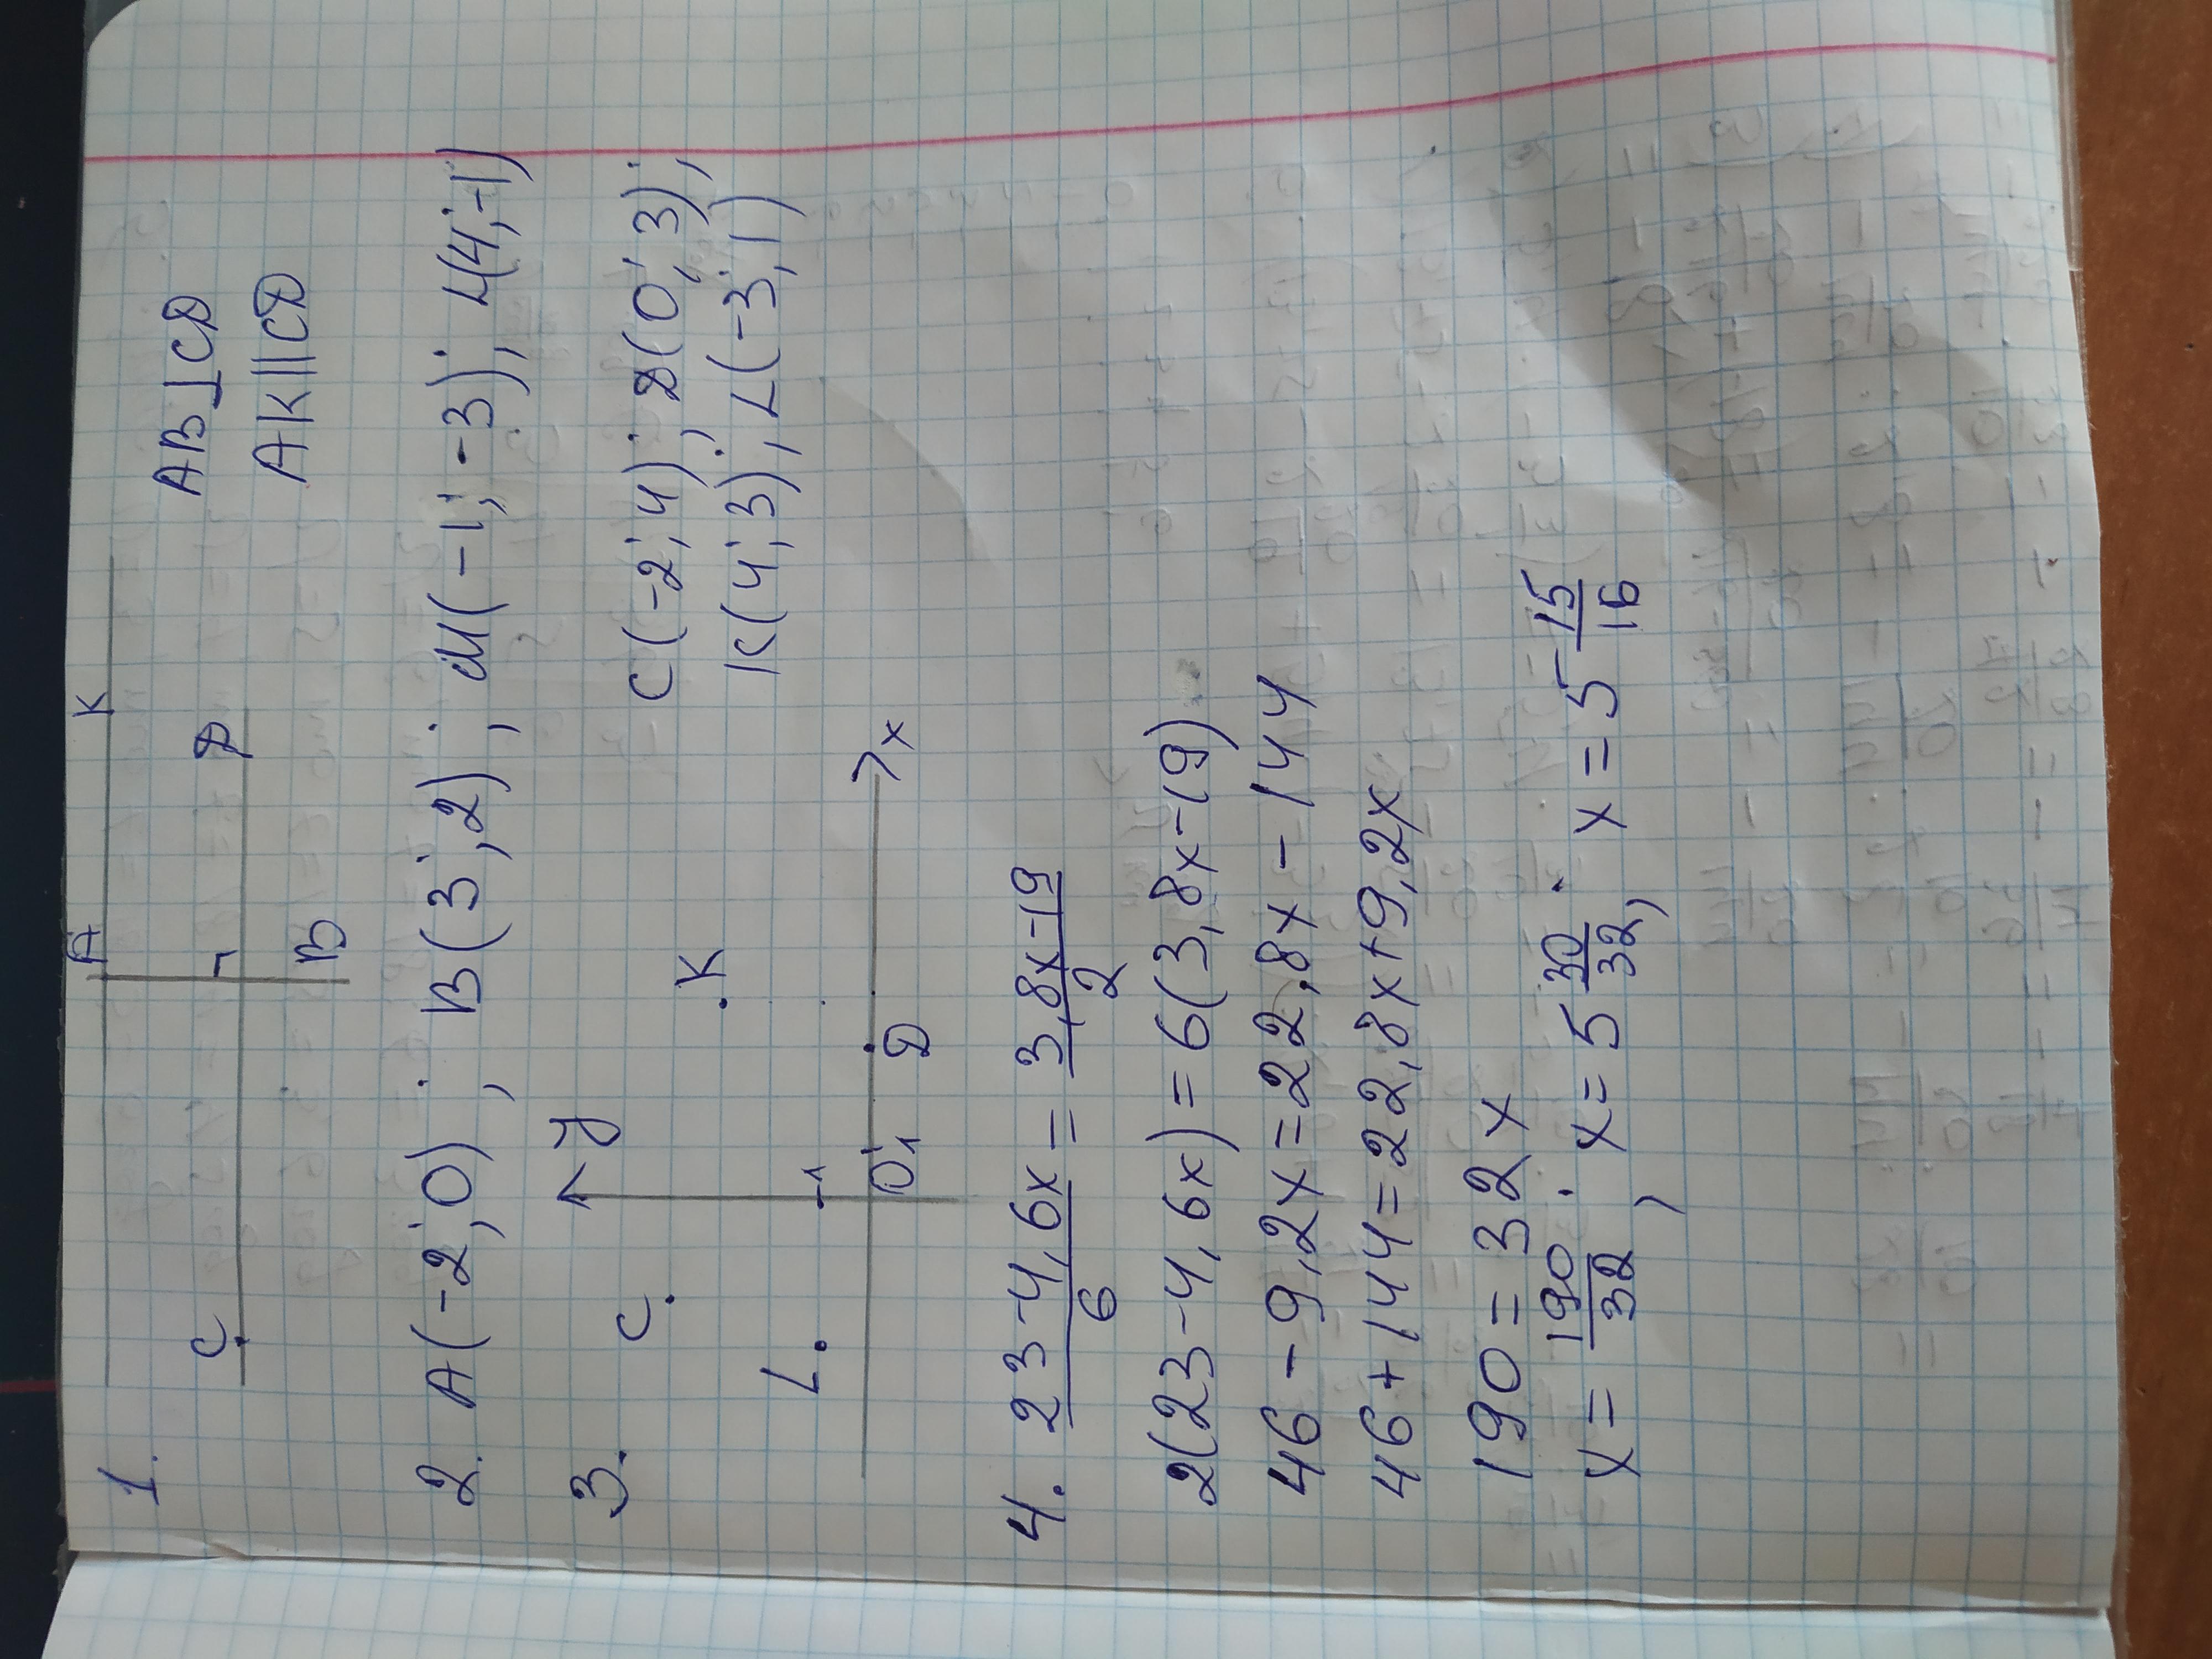 1. A K
C D
B
AB ⊥ CD
AK || CD
2. A(-2;0); B(3;2); M(-1;-3); L(4;-1)
3. y
C. .K
L. 1
0 1 D x
C(-2;4); D(0;3);
K(4;3); L(-3;1)
4. \frac{23-4,6x}{6} = \frac{3,8x-19}{2}
2(23-4,6x) = 6(3,8x-19)
46-9,2x=22,8x-144
46+144=22,8x+9,2x
190=32x
x=\frac{190}{32}; x=5\frac{30}{32}; x=5\frac{15}{16}